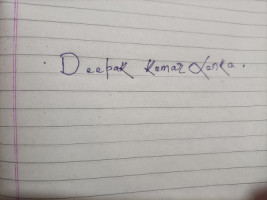 Deepak Kumar Lenka.